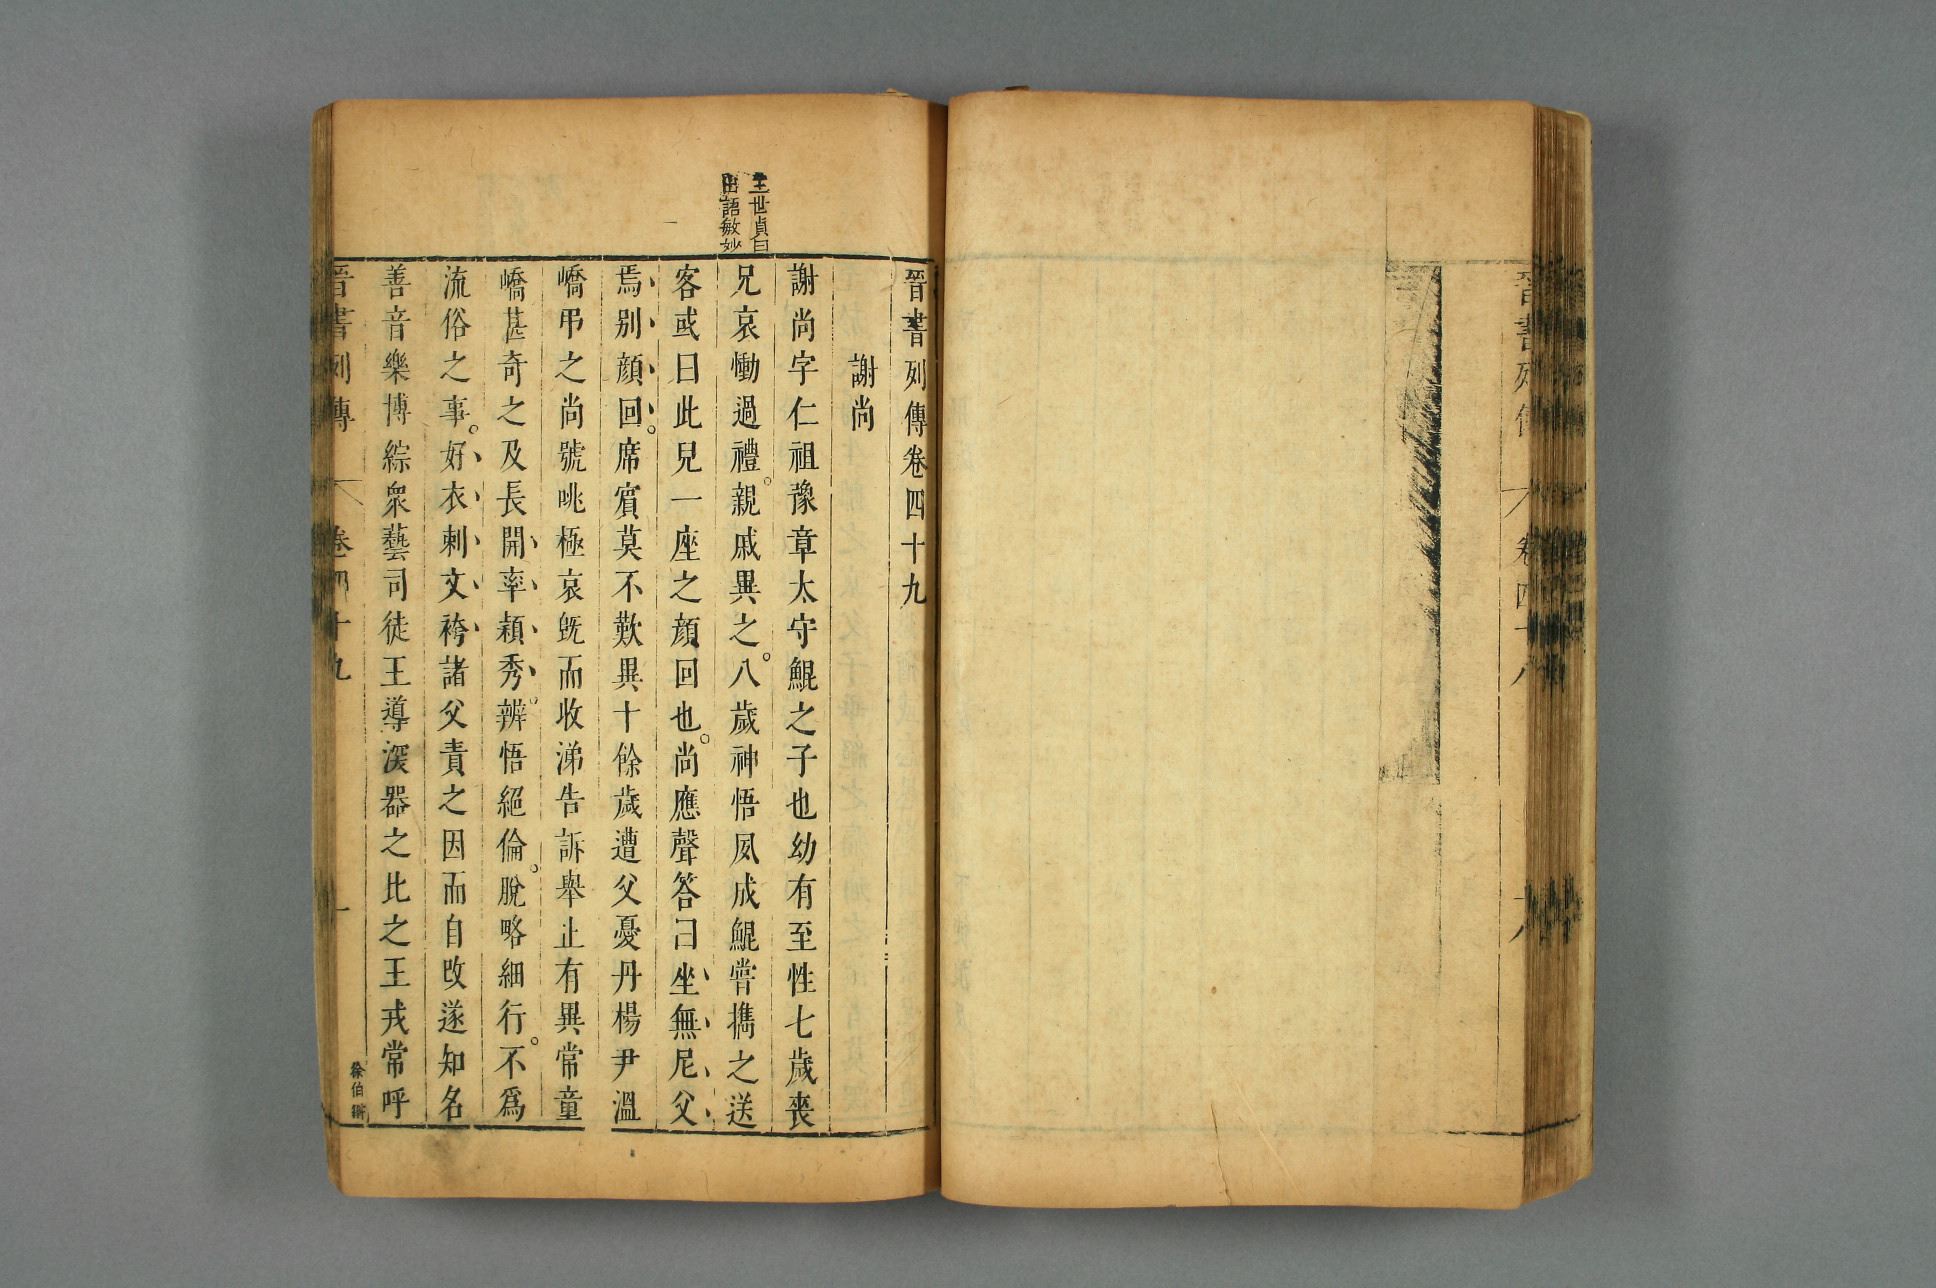 晉書列傳
卷四十八
十八
晉書列傳卷四十九
謝尚
王世貞曰
出語敏妙
謝尚字仁祖豫章太守鯤之子也幼有至性七歲喪
兄哀慟過禮。親戚異之。八歲神悟夙成鯤嘗攜之送
客或曰此兒一座之顏回也。尚應聲答曰坐無尼父
焉別顏回。席賓莫不歎異十餘歲遭父憂丹楊尹溫
嶠弔之尚號咷極哀旣而收涕告訴舉止有異常童
嶠甚奇之及長開率穎秀。辨悟絕倫。脫略細行。不爲
流俗之事。好衣刺文袴諸父責之因而自改遂知名
善音樂博綜衆藝司徒王導深器之比之王戎常呼
晉書列傳
卷四十九
一
徐伯